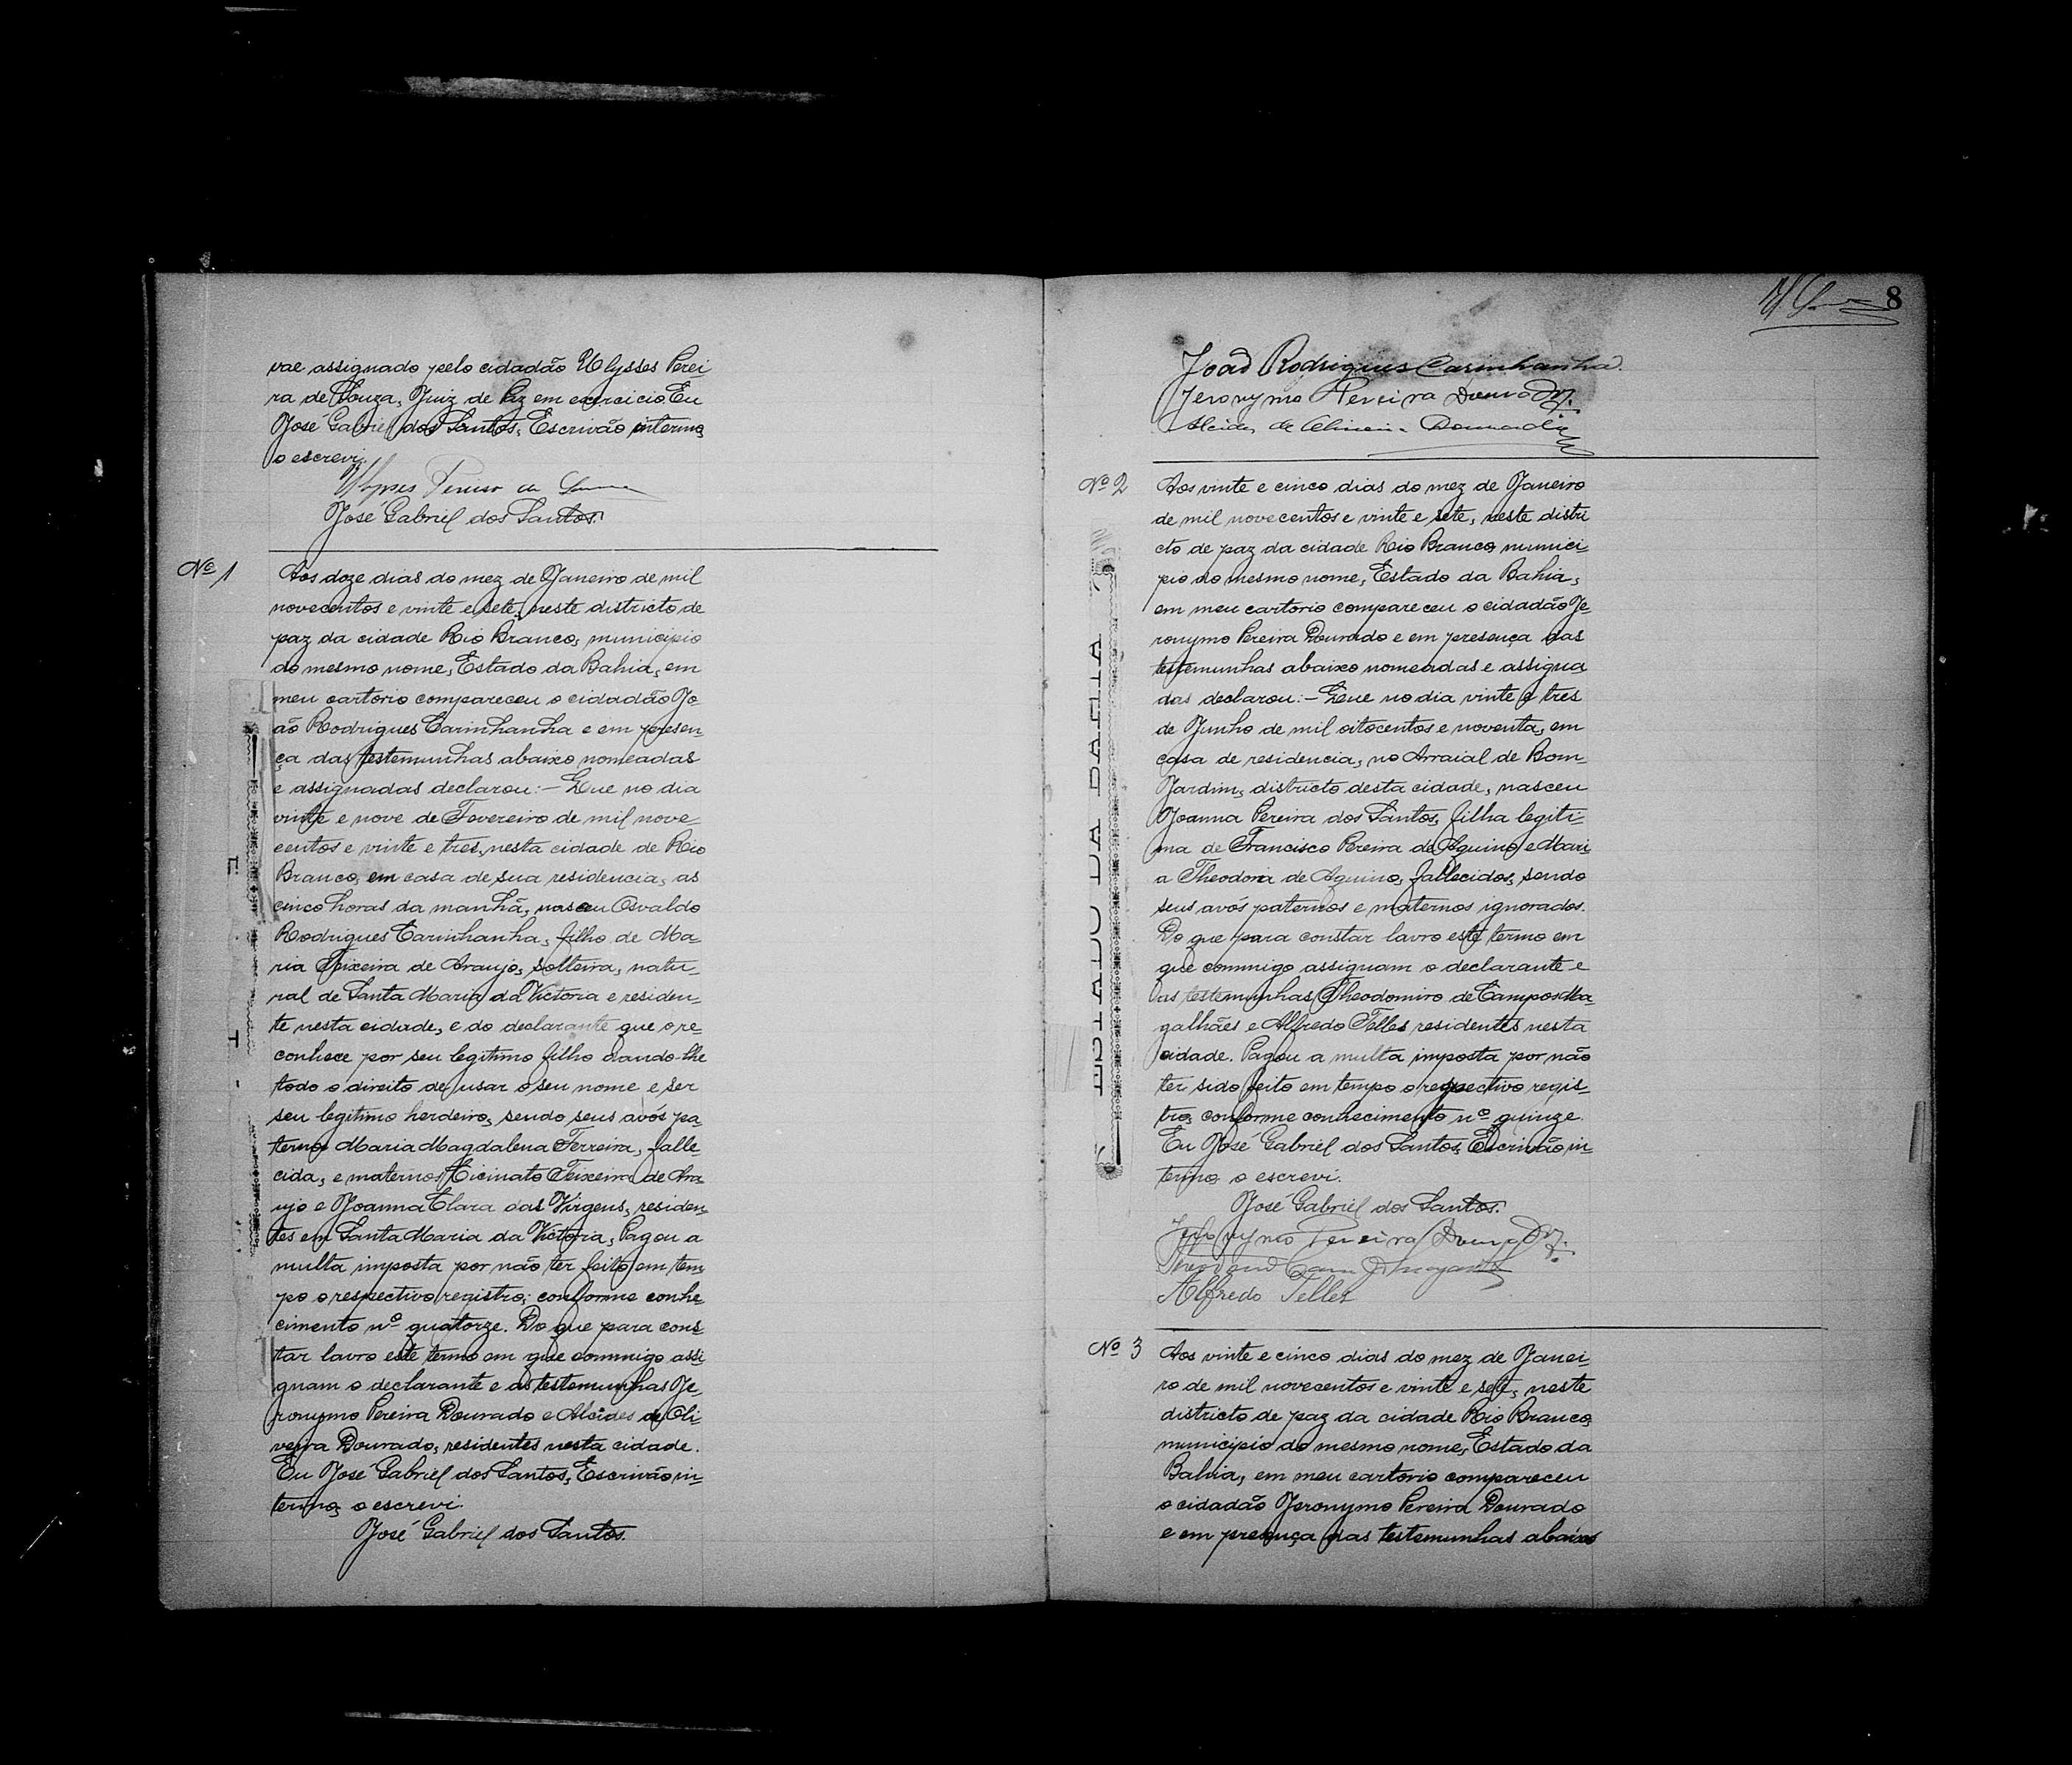 vae assignado pelo cidadão Ulysses Perei
ra de Souza, Juiz de Paz em exercicio. Eu
José Gabriel dos Santos, Escrivão interino,
o escrevi.
Ulysses Pereira de Souza
José Gabriel dos Santos.
Nº 1
Aos doze dias do mez de Janeiro de mil
novecentos e vinte e sete, neste districto de
paz da cidade Rio Branco, municipio
do mesmo nome, Estado da Bahia, em
meu cartorio compareceu o cidadão Jo
ão Rodrigues Carinhanha e em presen-
ça das testemunhas abaixo nomeadas
e assignadas declarou:- Que no dia
vinte e nove de Fevereiro de mil nove-
centos e vinte e tres, nesta cidade de Rio
Branco, em casa de sua residencia, as
cinco horas da manhã, nasceu Osvaldo
Rodrigues Carinhanha, filho de Ma-
ria Teixeira de Araujo, solteira, natu-
ral de Santa Maria da Victoria e residen-
te nesta cidade, e do declarante que o re-
conhece por seu legitimo filho dando-lhe
todo o direito de usar o seu nome e ser
seu legitimo herdeiro, sendo seus avós pa
terno Maria Magdalena Ferreira, falle-
cida, e maternos Teixeira de Ara
ujo e Joanna Clara das Virgens, residen-
tes em Santa Maria da Victoria, Pagou a
multa imposta por não ter feito em tem
po o respectivo registro; conforme conhe-
cimento nº quatorze. Do que para cons-
tar lavro este termo em que commigo assi
gnam o declarante e as testemunhas Je-
ronymo Pereira Dourado e Alcides de Oli-
veira Dourado, residentes nesta cidade.
Eu José Gabriel dos Santos, Escrivão in-
terino, o escrevi.
José Gabriel dos Santos.
8
João Rodrigues Carinhanha.
Jeronymo Pereira Dourado
Alcides de Oliveira Dourado
Nº 2
Aos vinte e cinco dias do mez de Janeiro
de mil novecentos e vinte e sete, neste distri
cto de paz da cidade Rio Branco, munici-
pio do mesmo nome, Estado da Bahia,
em meu cartorio compareceu o cidadão Je-
ronymo Pereira Dourado e em presença das
testemunhas abaixo nomeadas e assigna
das declarou:- Que no dia vinte e tres
de Junho de mil oitocentos e noventa, em
casa de residencia, no Arraial de Bom-
Jardim, districto desta cidade, nasceu
Joanna Pereira dos Santos, filha legiti-
ma de Francisco Pereira de Aquino e Mari-
a Theodora de Aquino, fallecidos, sendo
seus avós paternos e maternos ignorados.
Do que para constar lavro este termo em
que commigo assignam o declarante e
as testemunhas Theodomiro de Campos Ma-
galhães e Alfredo Telles residentes nesta
cidade. Pagou a multa imposta por não
ter sido feito em tempo o respectivo regis-
tro, conforme conhecimento nº quinze.
Eu José Gabriel dos Santos, Escrivão in-
terino o escrevi.
José Gabriel dos Santos.
Jeronymo Pereira Dourado
Alfredo Telles
ESTADO DA BAHIA
Nº 3
Aos vinte e cinco dias do mez de Janei-
ro de mil novecentos e vinte e sete, neste
districto de paz da cidade Rio Branco
municipio do mesmo nome, Estado da
Bahia, em meu cartorio compareceu
o cidadão Jeronymo Pereira Dourado
e em presença das testemunhas abaixo